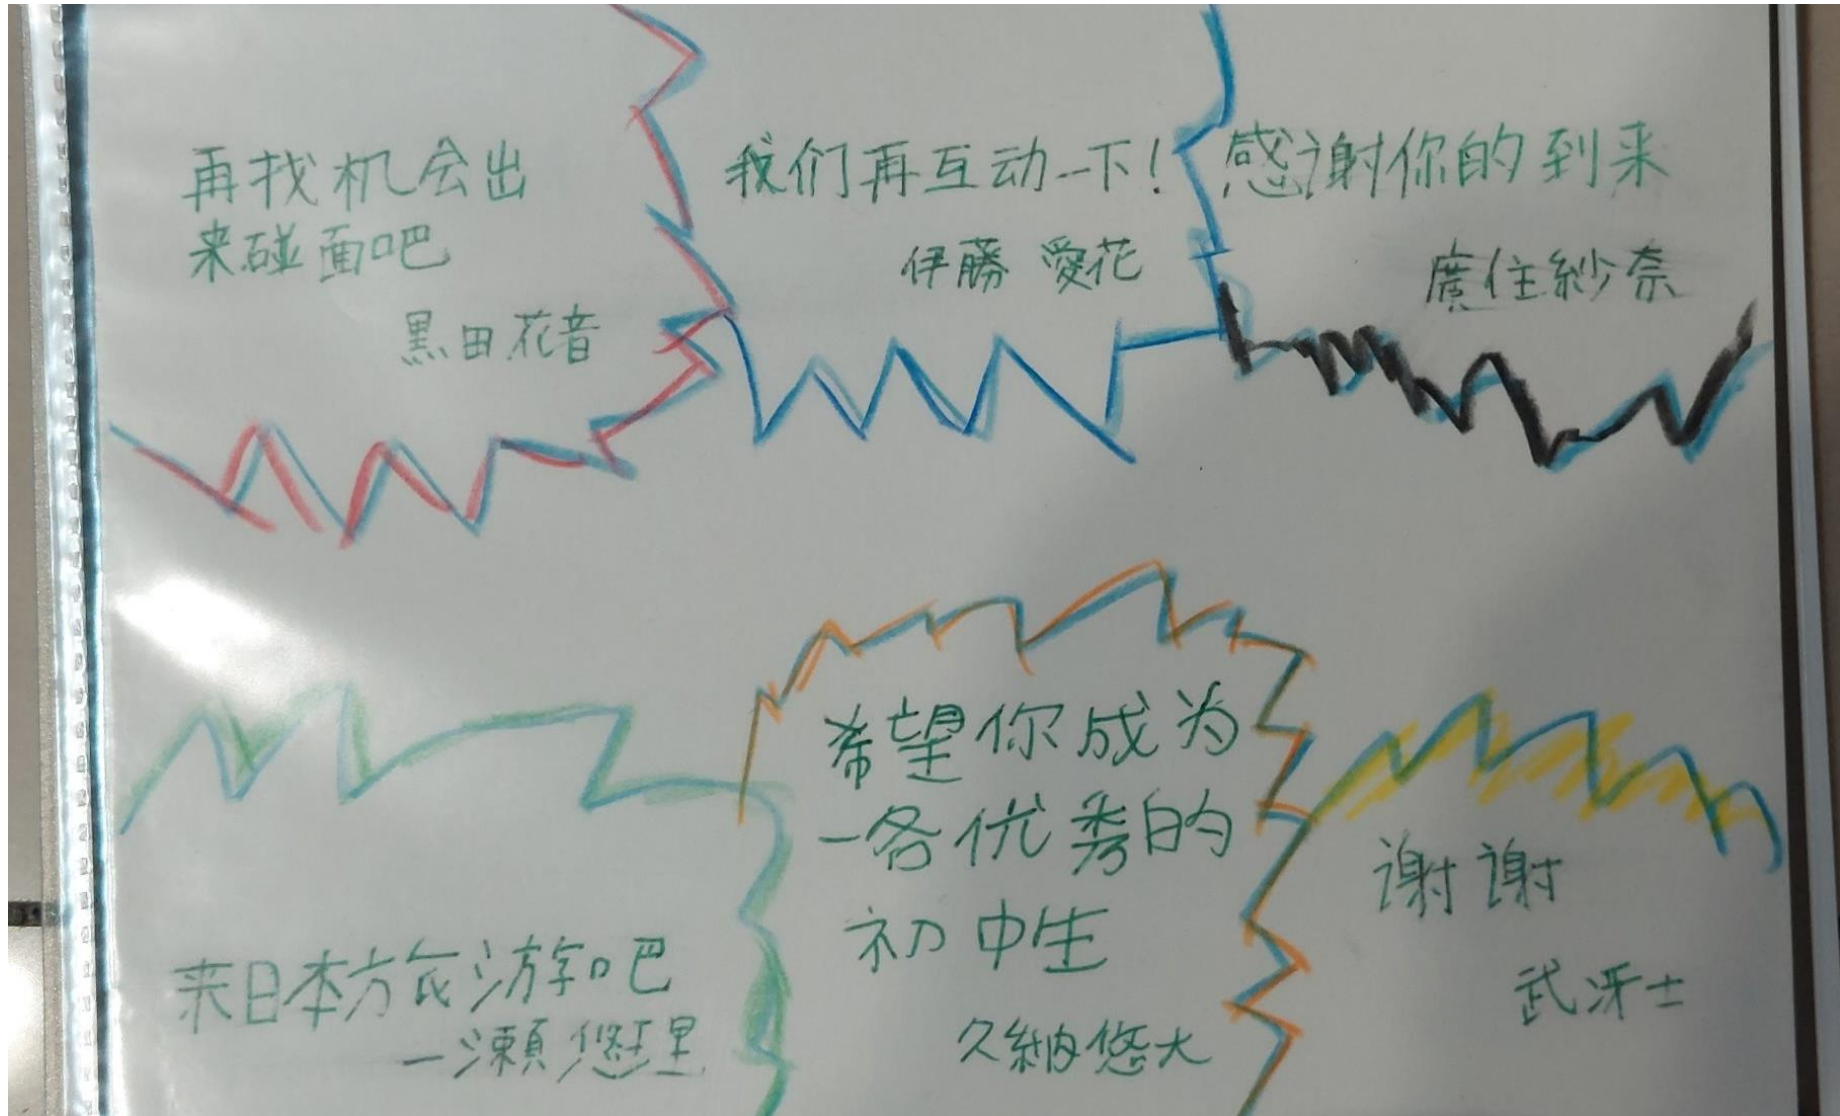 再找机会出
来碰面吧
黒田花音
我们再互动一下!
伊藤 愛花
感谢你的到来
廣住紗奈
来日本旅游吧
一瀬悠里
希望你成为
一各优秀的
初中生
久納悠大
谢谢
武冴士